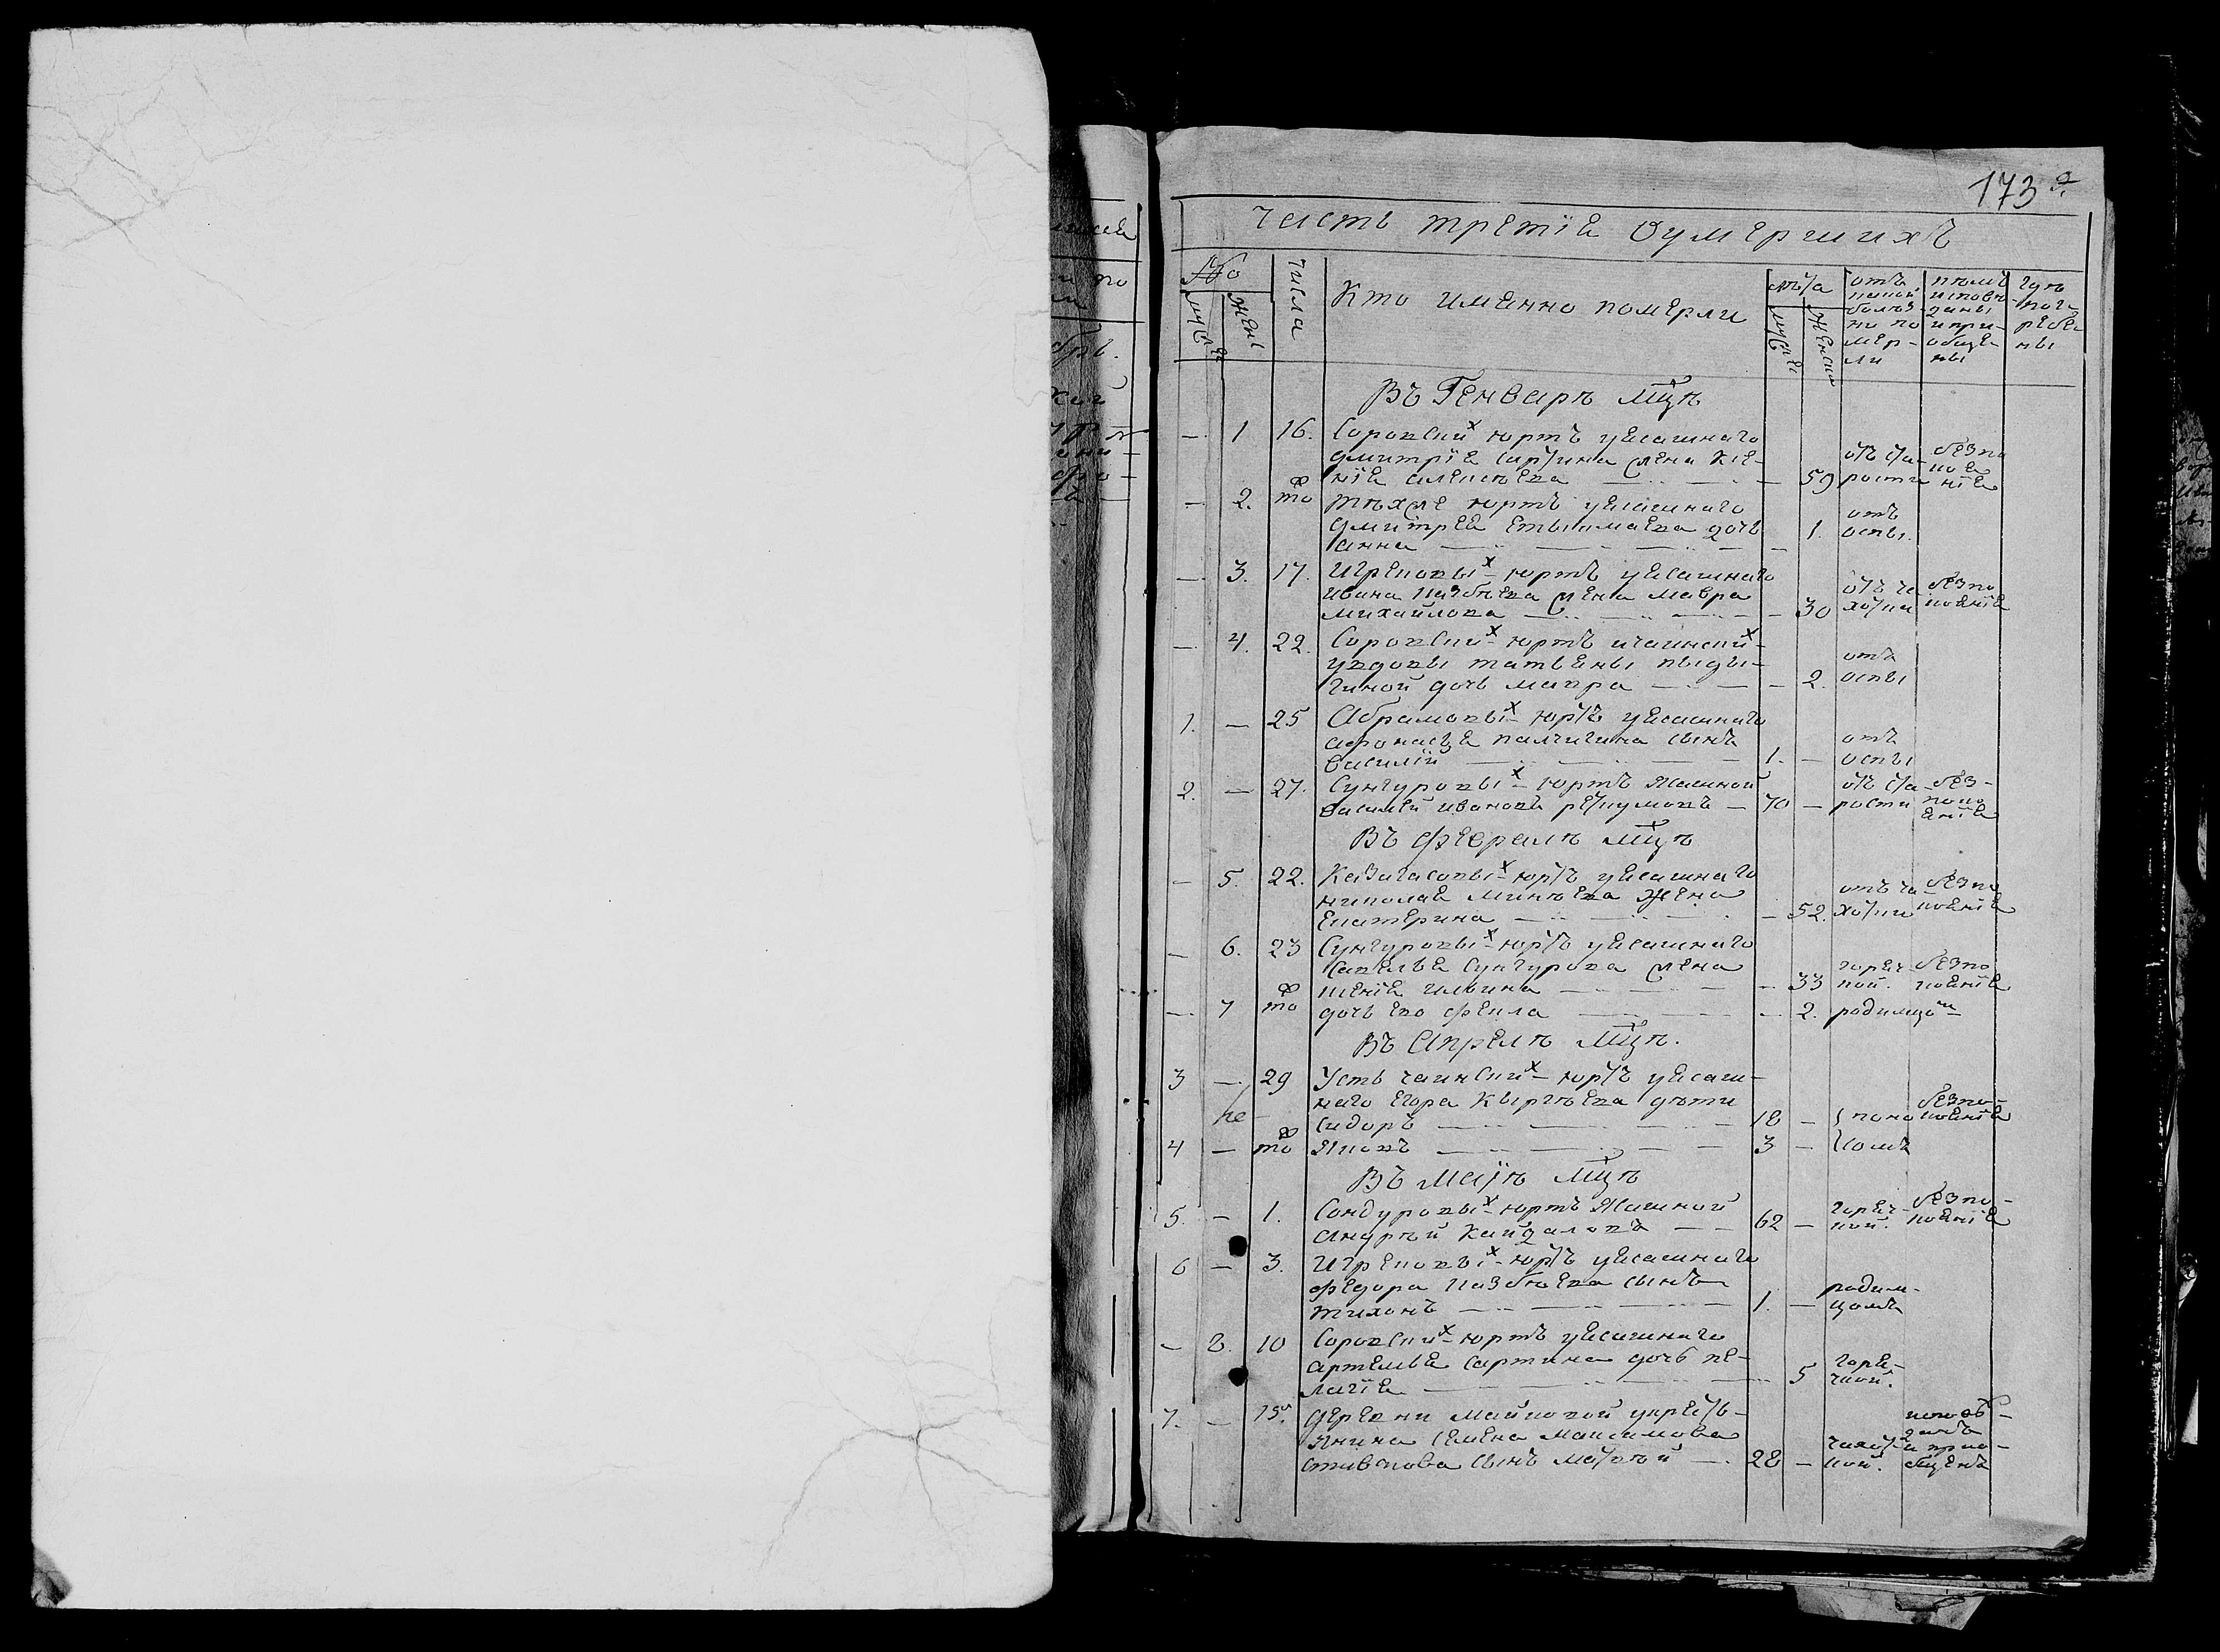 173
Часть третiя Оумершихъ
№
Мужс
Женс
Числа
Кто имянно померли
лѣта
Мужс
Женск
отъ какой болѣзни померли
кѣмъ исповѣданы и приобщены
гдѣ погребены
Въ Генварѣ мцѣ
— 1 16. Соровских юртъ ясашнаго
Дмитрiя Сартина жена
нiя Алексѣева — 59 отъ старости без покаянiя
— 2. то тѣхже юртъ ясашнаго
Дмитрея дочь
Анна — 1. отъ оспы.
— 3. 17. Игрековых юртъ ясашнаго
Ивана жена Мавра
Михайлова — 30 отъ чахотки без покаянiя
— 4. 22. Соровских юртъ
вдовы Татьяны
гиной дочь Мавра — 2. отъ оспы
1. — 25 Абрамовых юртъ ясашнаго
Афонасья Палчигина сынъ
Василiй 1. — отъ оспы
2. — 27. Сунгуровых юртъ Ясашной
Василей Ивановъ — 70 — отъ старости без покаянiя
Въ Февралѣ мцѣ
— 5. 22. юртъ ясашнаго
Николая Минѣева Жена
Екатерина — 52. отъ чахотки без покаянiя
— 6. 23 Сунгуровых юртъ ясашнаго
Савелья Сунгурова жена
Ильина — 33 горячкой. без покаянiя
— 7 то дочь ево Фекла — 2. родимцом
Въ Апрелѣ мцѣ.
3 — 29 Усть чаинских юртъ ясаш-
наго Егора Кыргѣева дѣти
Сидоръ 18 — поносомъ без покаянiя
4 — то Яковъ 3 —
Въ Маiѣ мцѣ
5. — 1. Сондуровых юртъ Ясашной
Андрѣй Кайдаловъ 62 — горячкой. без покаянiя
6 — 3. Игрековых юртъ ясашнаго
Федора сынъ
Тихонъ 1. — родимцомъ
— 8. 10 Соровских юртъ ясашнаго
Артемья Сартина дочь Пе-
лагiя 5 горячкой.
7. — 15. Деревни Майковой укрестья-
янина Семена Максимова
сынъ Матвѣй — 28 — чахоткой. исповѣданъ и приобщенъ